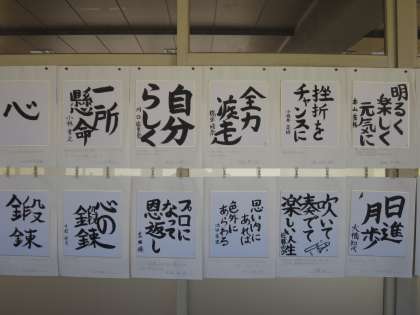 明るく
楽しく
元気に
挫折を
チャンスに
全力
疾走
自分
らしく
一所
懸命
心
日進
月歩
吹いて
奏でて
楽しい人生
思い内に
あれば
色外に
あらわる
プロに
なって
恩返し
心の
鍛錬
鍛錬